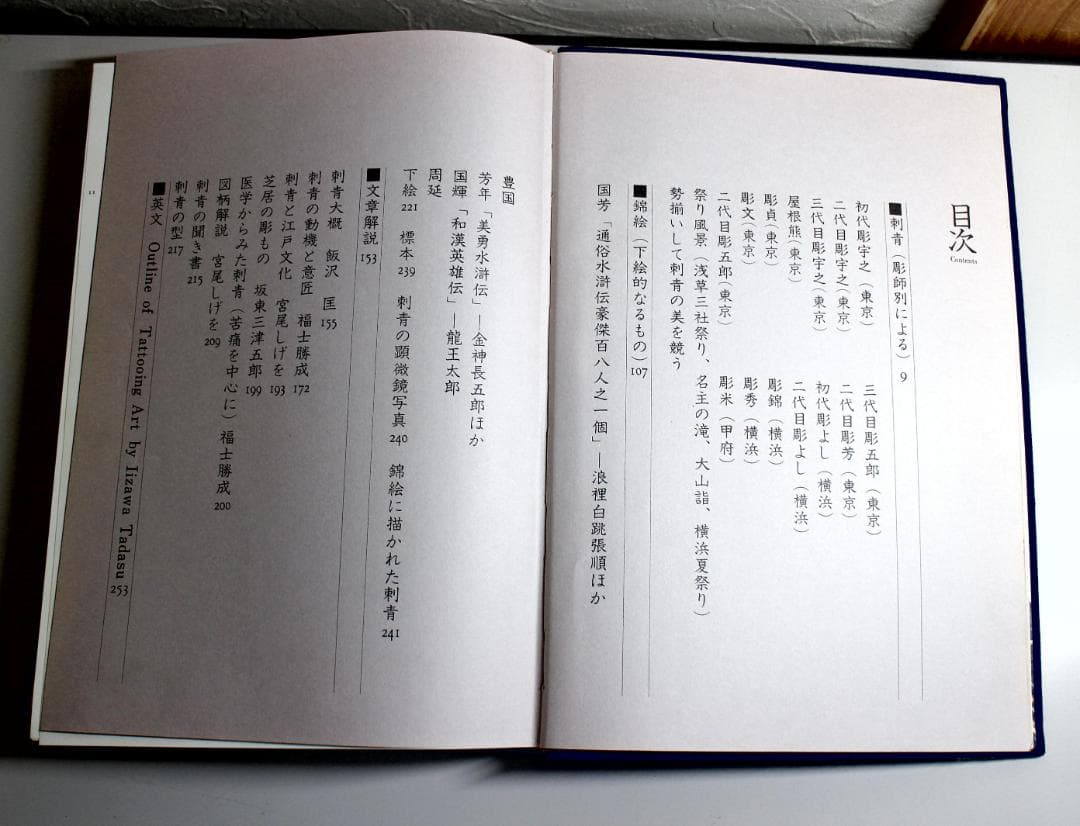 目次
Contents
■刺青（彫師別による）9
初代彫宇之（東京）
二代目彫宇之（東京）
三代目彫宇之（東京）
屋根熊（東京）
彫貞（東京）
彫文（東京）
二代目彫五郎（東京）
三代目彫五郎（東京）
二代目彫芳（東京）
初代彫よし（横浜）
二代目彫よし（横浜）
彫錦（横浜）
彫秀（横浜）
彫米（甲府）
祭り風景（浅草三社祭り、名主の滝、大山詣、横浜夏祭り）
勢揃いして刺青の美を競う
■錦絵（下絵的なるもの）107
国芳「通俗水滸伝豪傑百八人之一個」—浪裡白跳張順ほか
豊国
芳年「美勇水滸伝」—金神長五郎ほか
国輝「和漢英雄伝」—龍王太郎
周延
下絵221　標本239　刺青の顕微鏡写真240　錦絵に描かれた刺青241
■文章解説153
刺青大概　飯沢　匡155
刺青の動機と意匠　福士勝成172
刺青と江戸文化　宮尾しげを193
芝居の彫もの　坂東三津五郎199
医学からみた刺青（苦痛を中心に）福士勝成200
図柄解説　宮尾しげを209
刺青の聞き書215
刺青の型217
■英文　Outline of Tattooing Art by Iizawa Tadasu 253